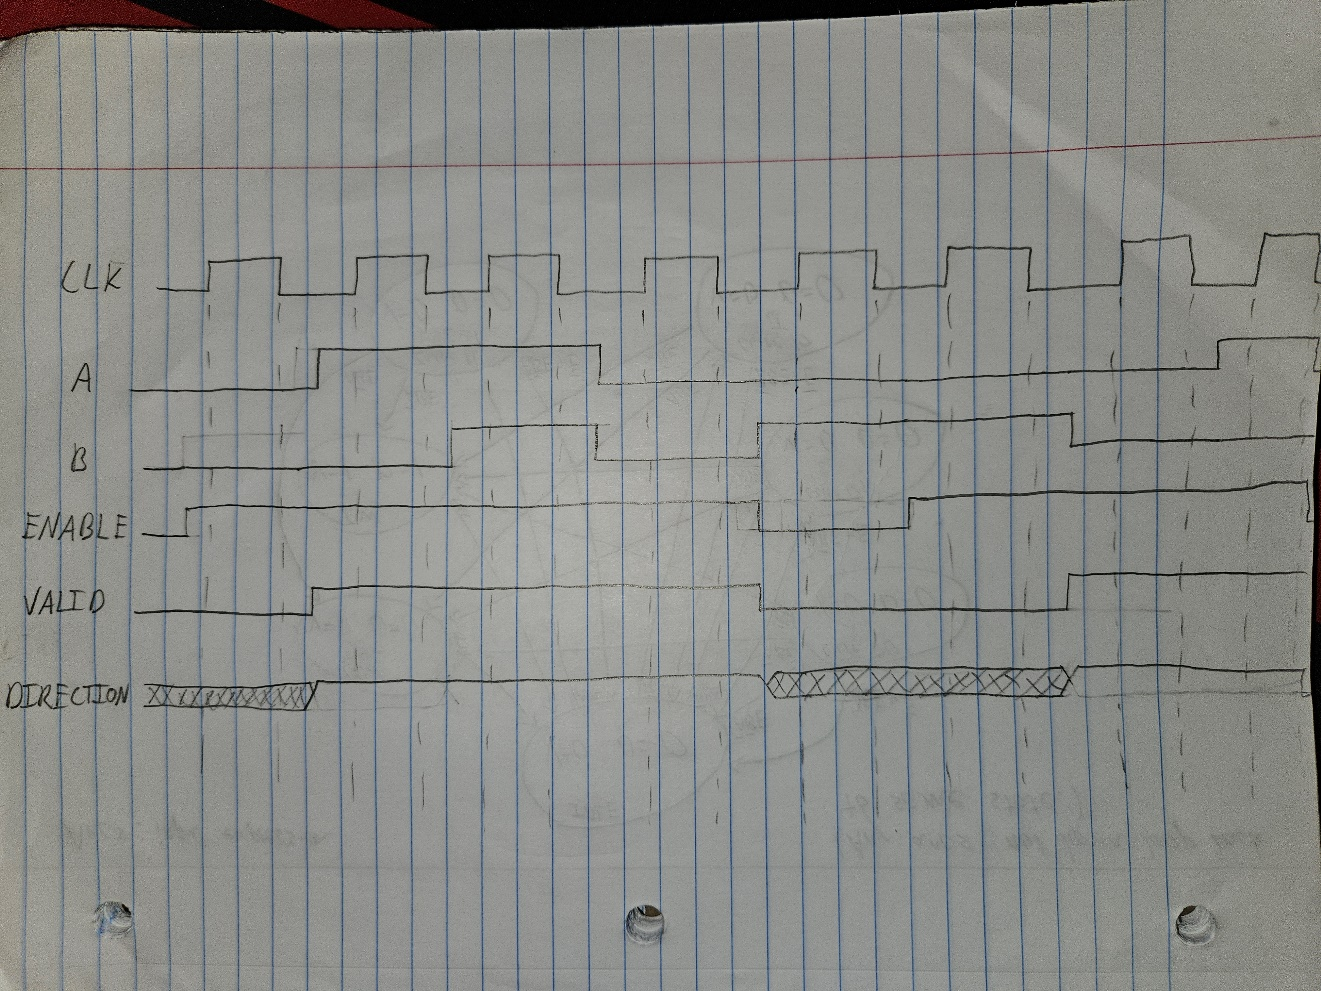 CLK
A
B
ENABLE
VALID
DIRECTION